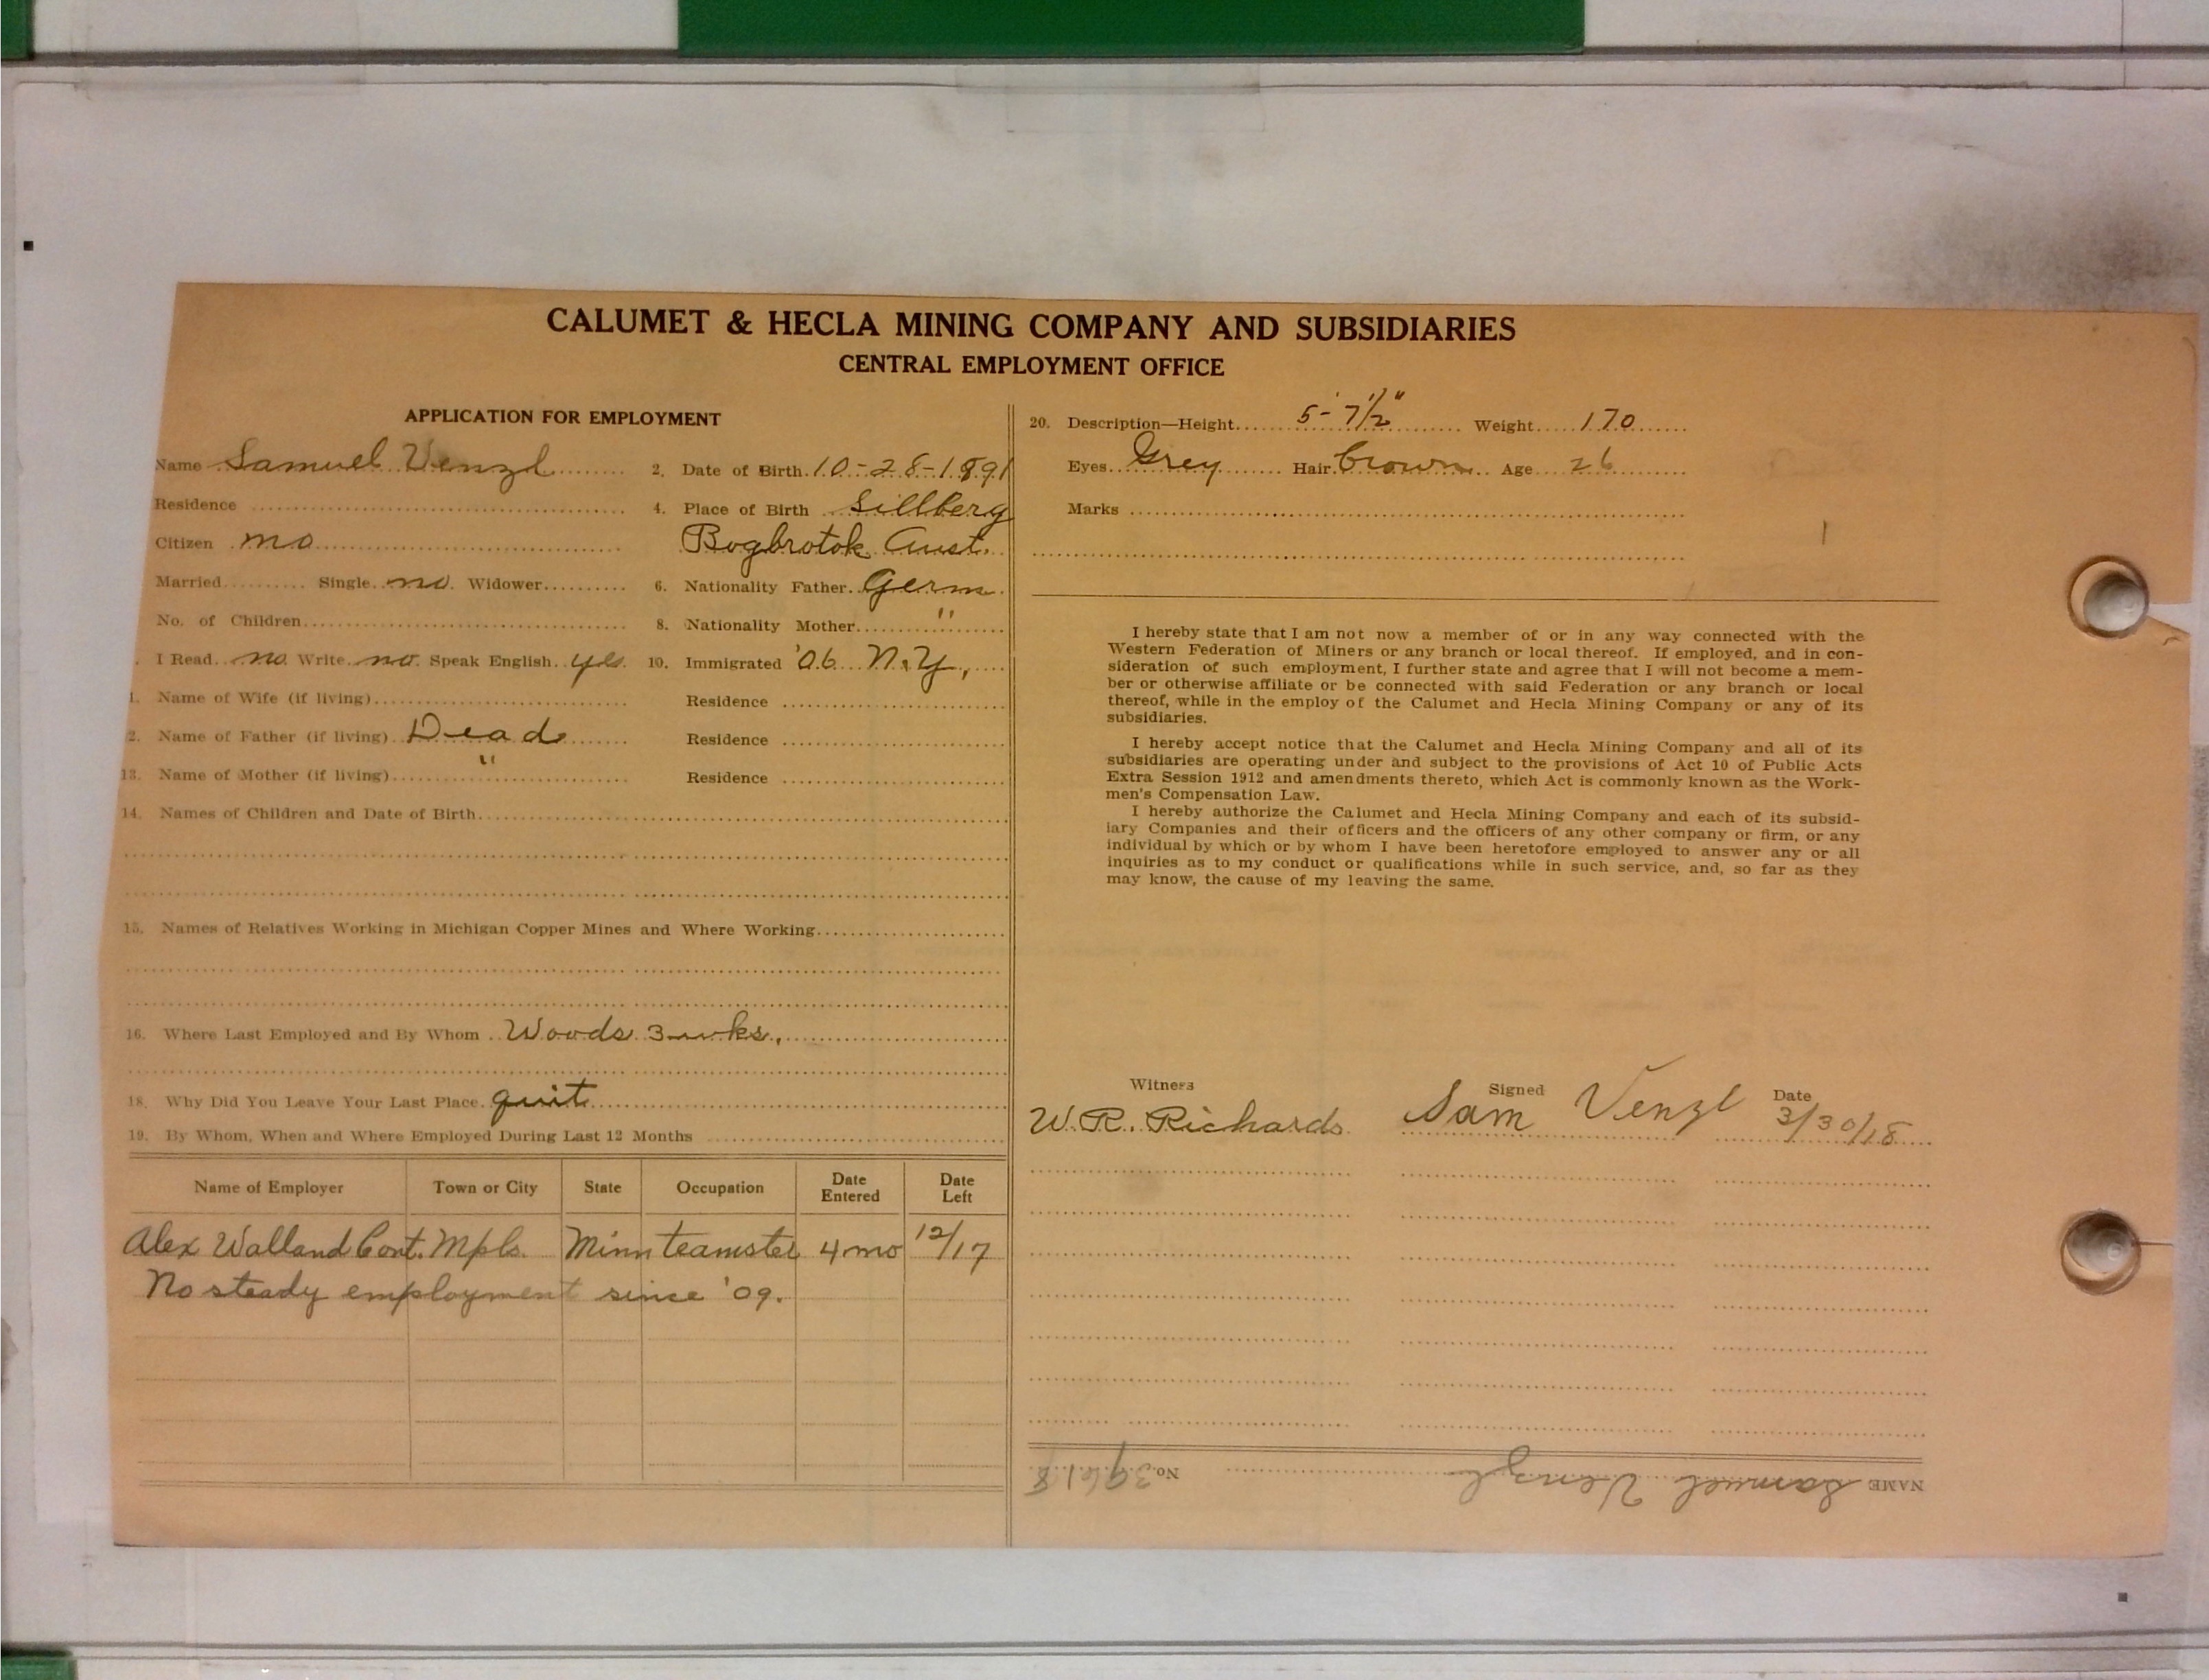 CALUMET & HECLA MINING COMPANY AND SUBSIDIARIES
CENTRAL EMPLOYMENT OFFICE
APPLICATION FOR EMPLOYMENT
Name Samuel Venzl
2. Date of Birth 10-28-1891
Residence
4. Place of Birth Sillberg
Citizen no
Bogbrotok Aust.
Married Single no Widower
6. Nationality Father Germ.
No. of Children
8. Nationality Mother "
I Read no Write no Speak English yes
10. Immigrated '06 N.Y,
1. Name of Wife (if living) Residence
2. Name of Father (if living) Dead Residence
13. Name of Mother (if living) " Residence
14. Names of Children and Date of Birth
15. Names of Relatives Working in Michigan Copper Mines and Where Working
16. Where Last Employed and By Whom Woods 3 wks.
18. Why Did You Leave Your Last Place quit
19. By Whom, When and Where Employed During Last 12 Months
Name of Employer Town or City State Occupation Date Entered Date Left
Alex Walland Cont. Mpls. Minn teamster 4 mo 12/17
No steady employment since '09.
20. Description—Height 5'-7 1/2" Weight 170
Eyes Grey Hair brown Age 26
Marks
I hereby state that I am not now a member of or in any way connected with the
Western Federation of Miners or any branch or local thereof. If employed, and in con-
sideration of such employment, I further state and agree that I will not become a mem-
ber or otherwise affiliate or be connected with said Federation or any branch or local
thereof, while in the employ of the Calumet and Hecla Mining Company or any of its
subsidiaries.
I hereby accept notice that the Calumet and Hecla Mining Company and all of its
subsidiaries are operating under and subject to the provisions of Act 10 of Public Acts
Extra Session 1912 and amendments thereto, which Act is commonly known as the Work-
men's Compensation Law.
I hereby authorize the Calumet and Hecla Mining Company and each of its subsid-
iary Companies and their officers and the officers of any other company or firm, or any
individual by which or by whom I have been heretofore employed to answer any or all
inquiries as to my conduct or qualifications while in such service, and, so far as they
may know, the cause of my leaving the same.
Witness Signed Date
W. R. Richards Sam Venzl 3/30/18
NAME Samuel Venzl No. 39618